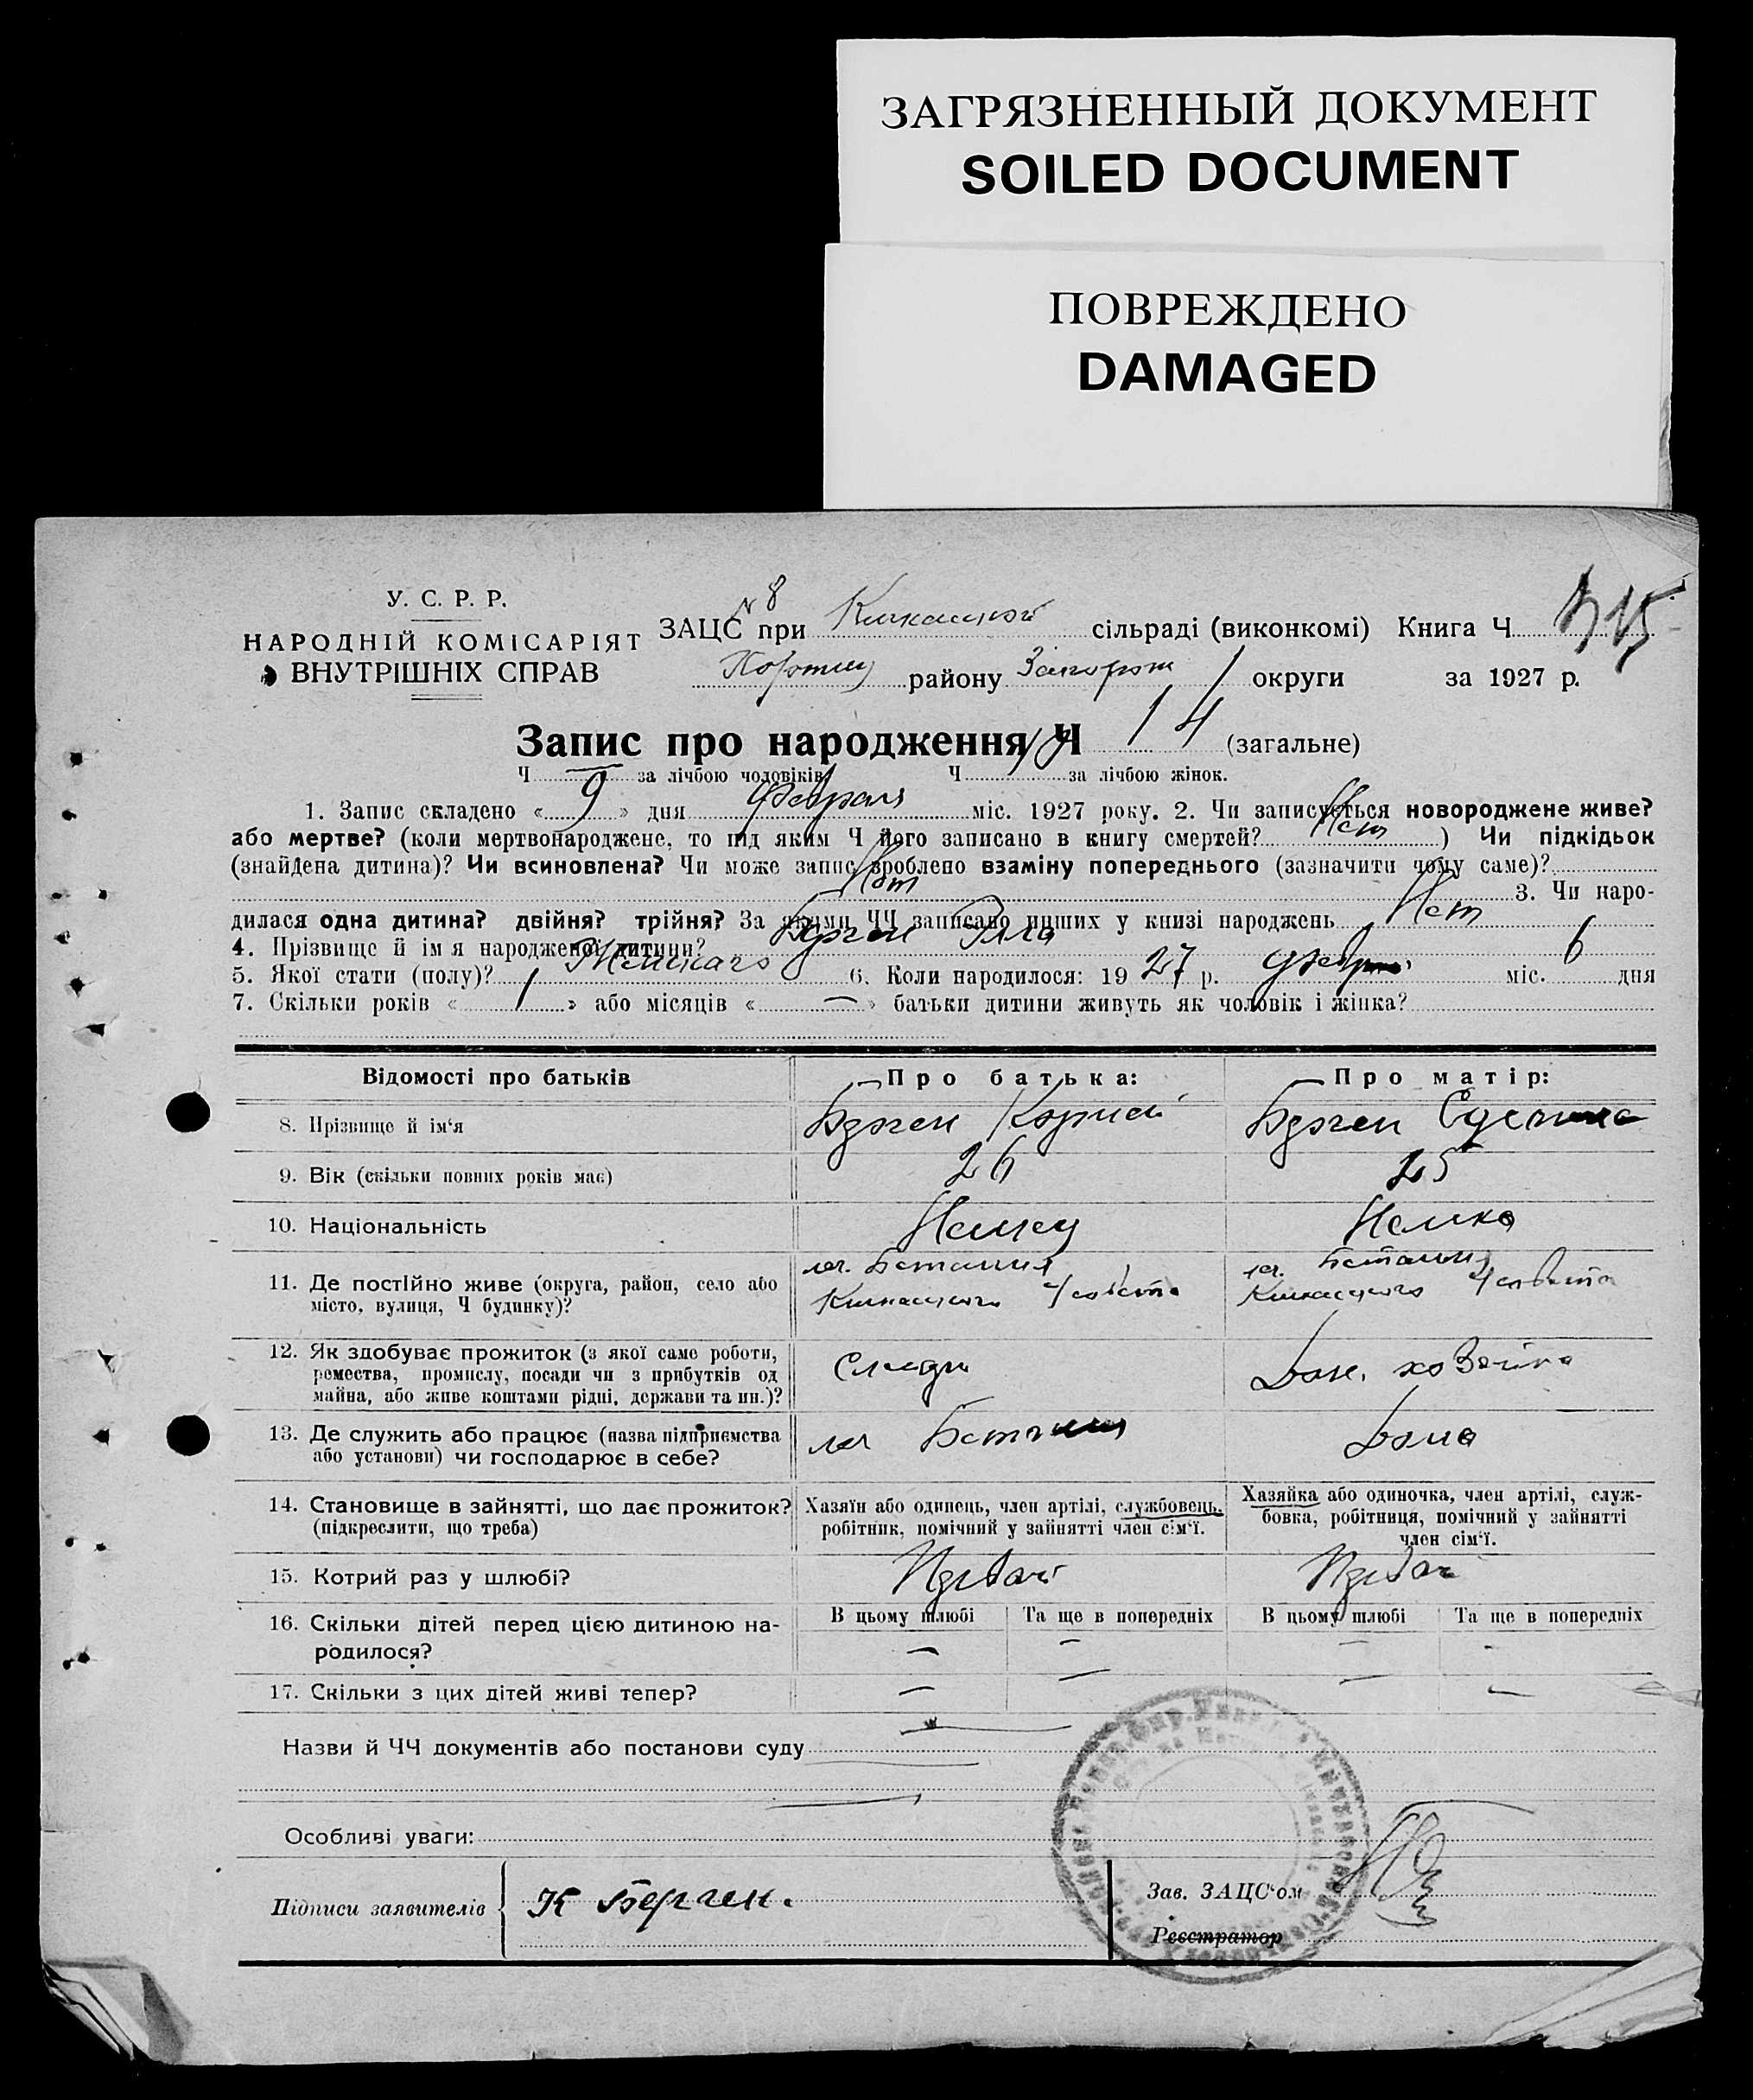 ЗАГРЯЗНЕННЫЙ ДОКУМЕНТ
SOILED DOCUMENT
ПОВРЕЖДЕНО
DAMAGED
У. С. Р. Р.
НАРОДНІЙ КОМІСАРІЯТ
ВНУТРІШНІХ СПРАВ
№ 8
ЗАЦС при сільраді (виконкомі) Книга Ч
району Запорож округи за 1927 р.
Запис про народження Ч 14 (загальне)
Ч за лічбою чоловіків Ч за лічбою жінок.
1. Запис складено « 9 » дня Февраля міс. 1927 року. 2. Чи записується новороджене живе?
або мертве? (коли мертвонароджене, то під яким Ч його записано в книгу смертей? Нет ) Чи підкідьок
(знайдена дитина)? Чи всиновлена? Чи може запис зроблено взаміну попереднього (зазначити чому саме)?
Нет 3. Чи наро-
дилася одна дитина? двійня? трійня? За якими ЧЧ записано инших у книзі народжень Нет
4. Прізвище й ім я народженої дитини? Берген
5. Якої стати (полу)? Женскаго 6. Коли народилося: 19 27 р. февр міс. 6 дня
7. Скільки років « 1 » або місяців « — » батьки дитини живуть як чоловік і жінка?
Відомості про батьків Про батька: Про матір:
8. Прізвище й ім‘я Берген Корней Берген
9. Вік (скільки повних років має) 26 25
10. Національність Немец Немка
11. Де постійно живе (округа, район, село або
місто, вулиця, Ч будинку)?
12. Як здобуває прожиток (з якої саме роботи,
ремества, промислу, посади чи з прибутків од
майна, або живе коштами рідні, держави та ин.)?
Дом. хозяйка
13. Де служить або працює (назва підприємства
або установи) чи господарює в себе?
Дома
14. Становище в зайнятті, що дає прожиток?
(підкреслити, що треба)
Хазяїн або одинець, член артілі, службовець,
робітник, помічний у зайнятті член сім‘ї.
Хазяйка або одиночка, член артілі, служ-
бовка, робітниця, помічний у зайнятті
член сім‘ї.
15. Котрий раз у шлюбі?
16. Скільки дітей перед цією дитиною на-
родилося?
В цьому шлюбі Та ще в попередніх В цьому шлюбі Та ще в попередніх
— — — —
17. Скільки з цих дітей живі тепер? — — — —
Назви й ЧЧ документів або постанови суду
Особливі уваги:
Підписи заявителів К Берген.
Зав. ЗАЦС‘ом
Реєстратор